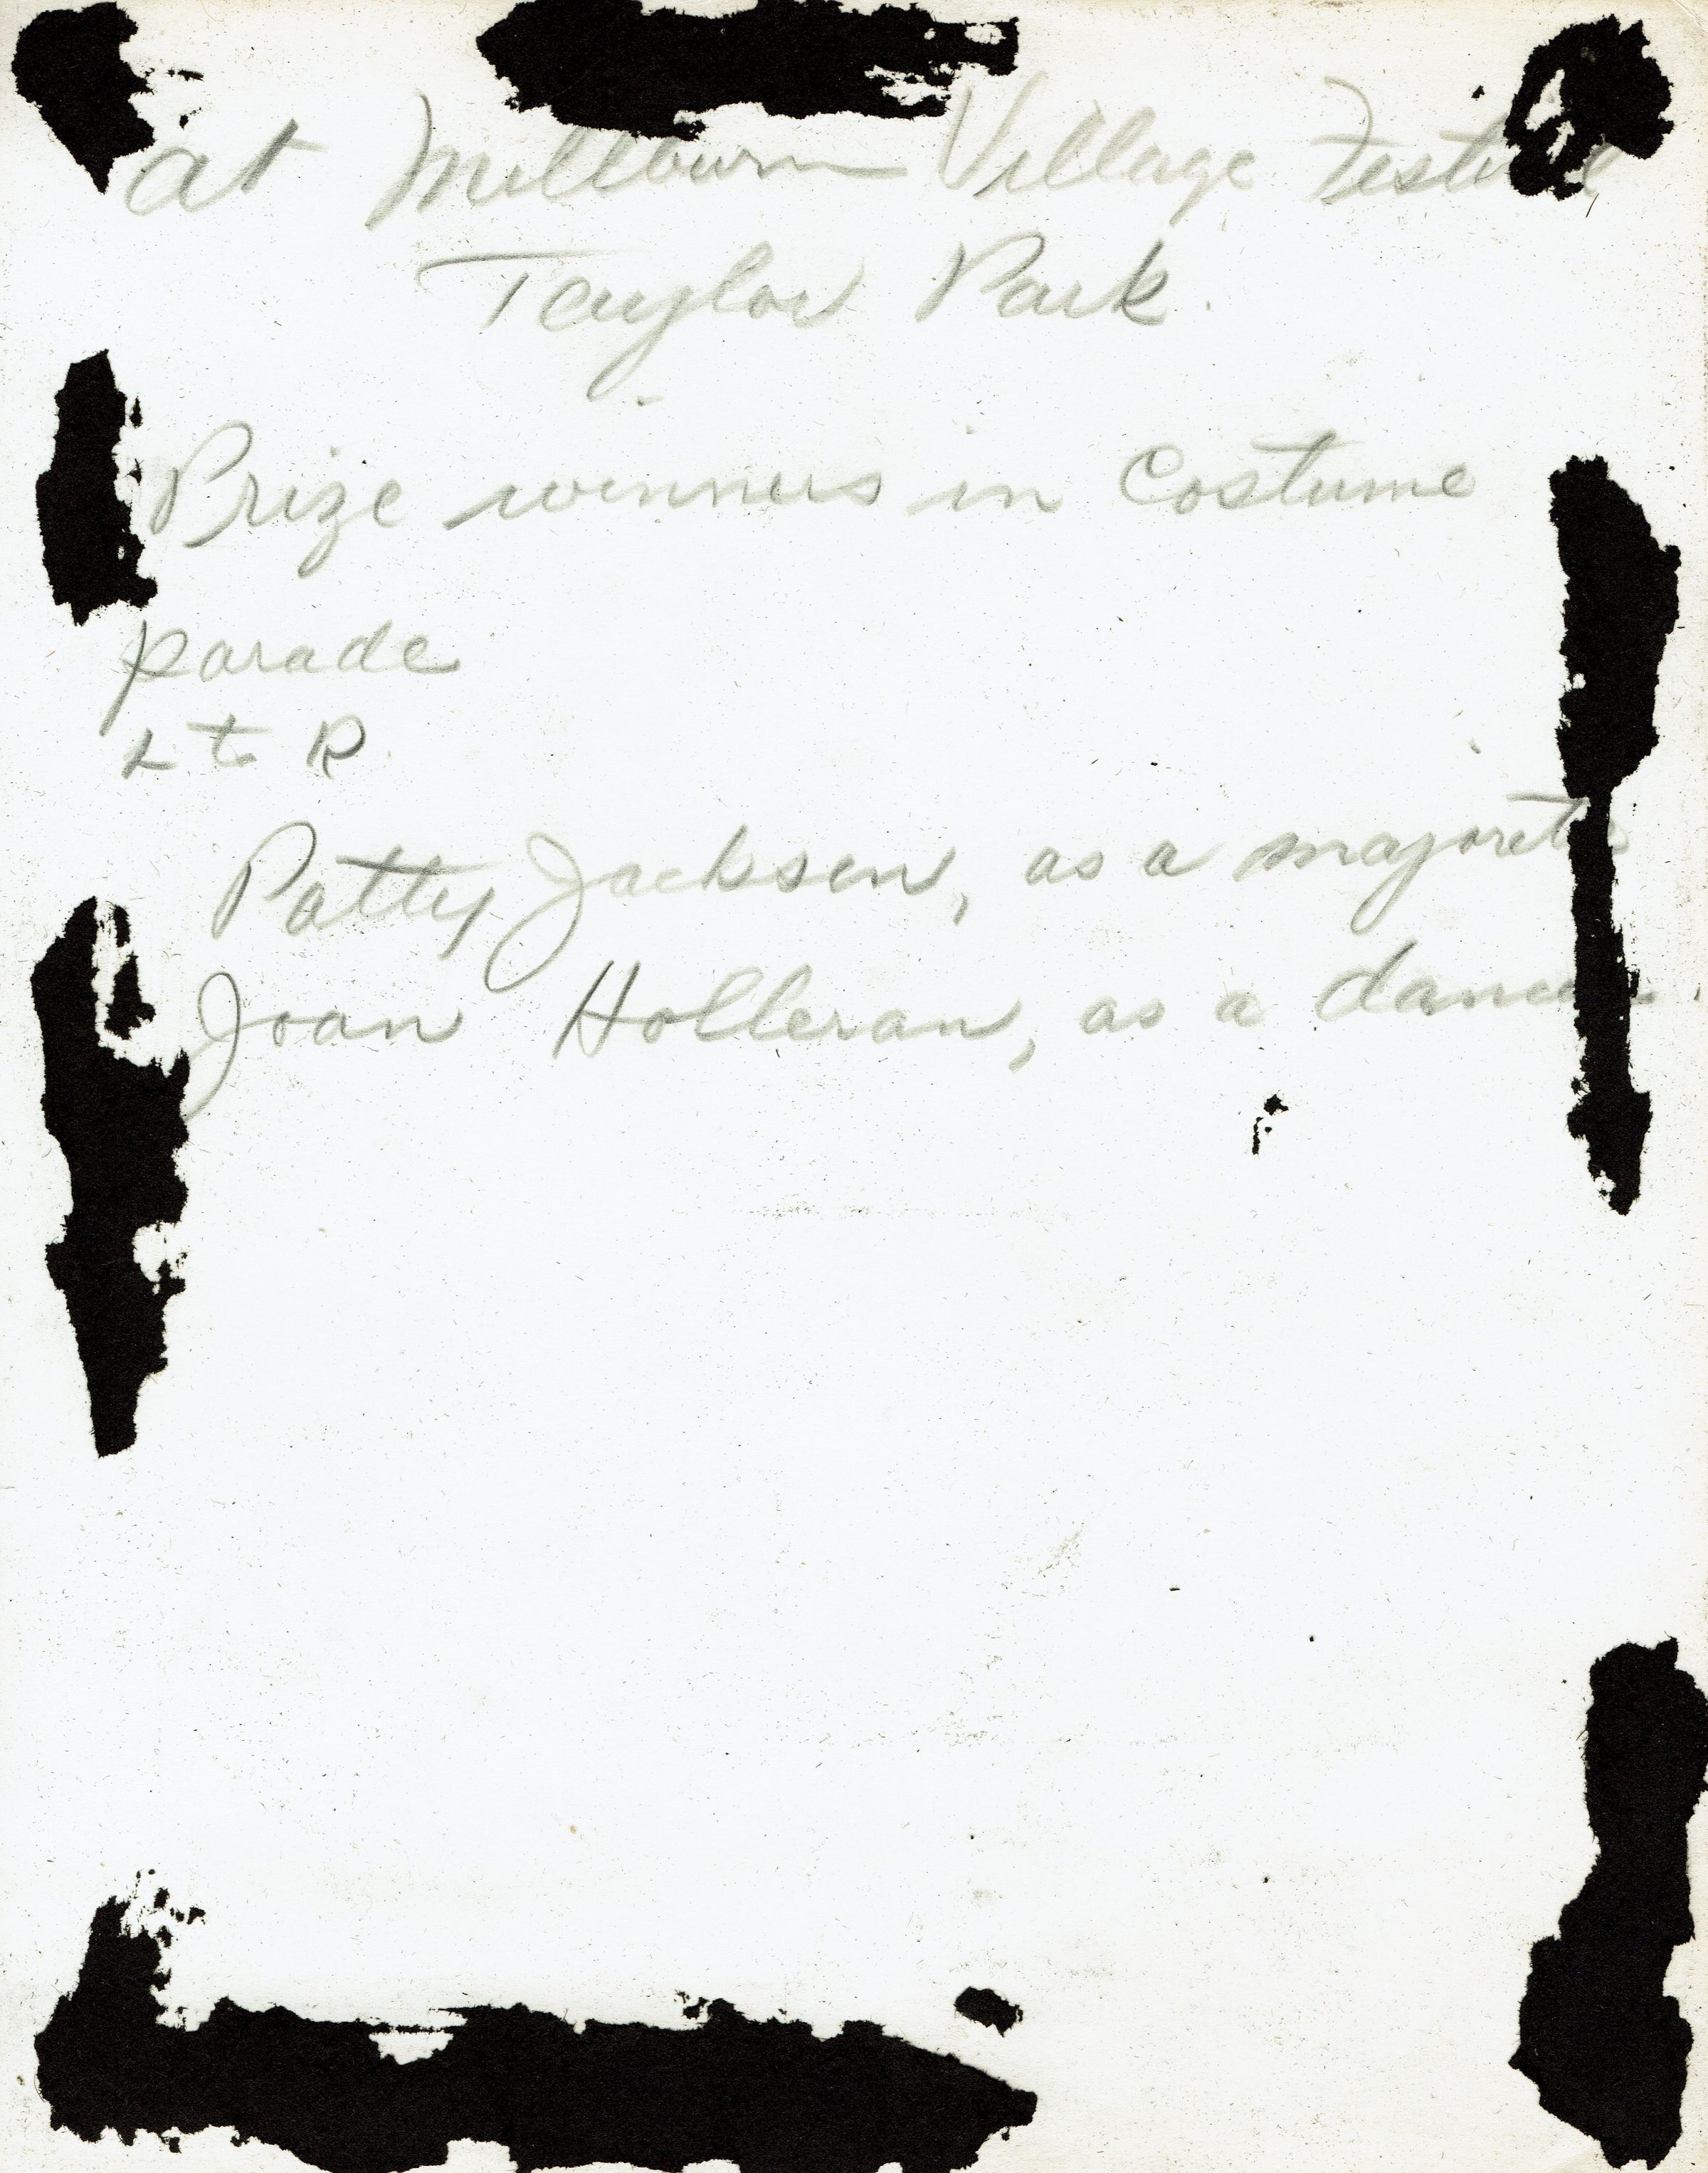 at Millburn Village Festival
Taylor Park.
Prize winners in Costume
parade
L to R
Patty Jackson, as a majorette
Joan Holleran, as a dancer.